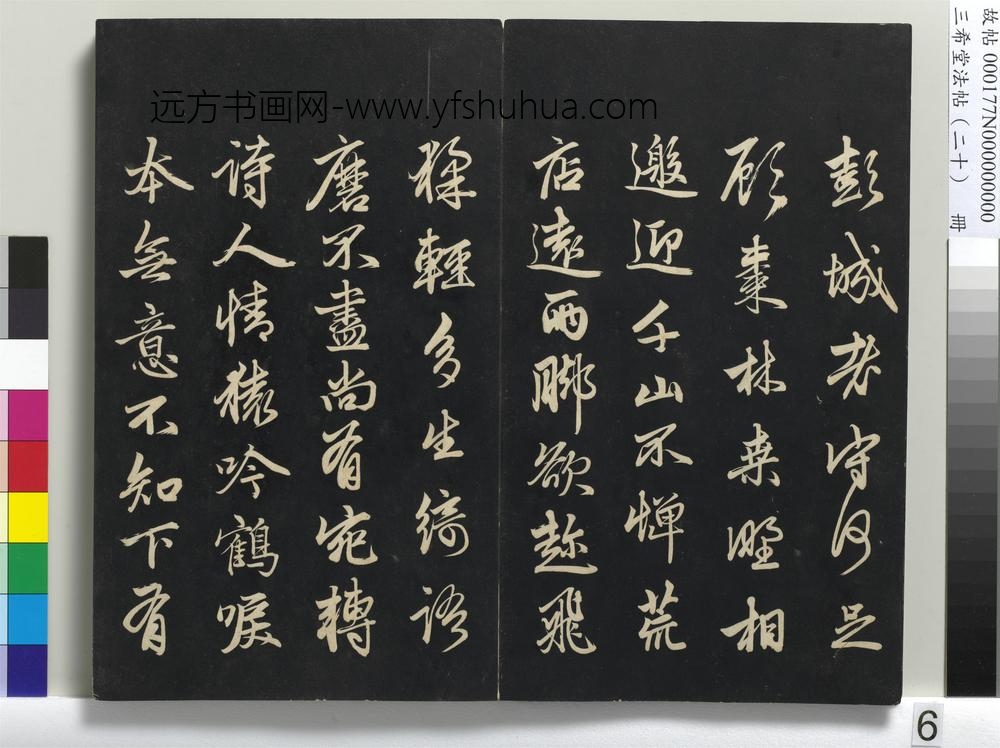 彭城老守何足
顧棗林桑野相
邀迎千山不憚荒
店遠兩脚欲趂飛
猱輕多生綺語
磨不盡尚有宛轉
詩人情猿吟鶴唳
本無意不知下有
远方书画网-www.yfshuhua.com
故帖 000177N000000000
三希堂法帖（二十） 冊
6